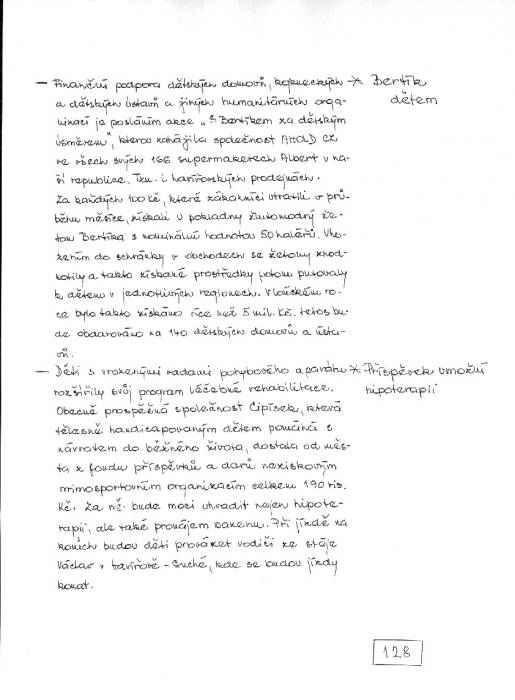 – Finanční podpora dětských domovů, kojeneckých * Bertík
a dětských ústavů a jiných humanitárních orga- dětem
nizací je posláním akce "S Bertíkem za dětským
úsměvem", kterou zahájila společnost AHOLD CZ
ve všech svých 166 supermaketech Albert v na-
ší republice. Tzn. i havířovských prodejnách.
Za každých 100 Kč, které zákazníci utratili v prů-
běhu měsíce, získali u pokladny žluto modrý že-
ton Bertíka s nominální hodnotou 50 haléřů. Vho-
zením do schránky v obchodech se žetony zhod-
notily a takto získané prostředky potom putovaly
k dětem v jednotlivých regionech. V loňském ro-
ce bylo takto získáno více než 5 mil. Kč. letos bu-
de obdarováno na 140 dětských domovů a ústa-
vů.
– Děti s vrozenými vadami pohybového aparátu * Příspěvek umožní
rozšířily svůj program léčebné rehabilitace. hipoterapii
Obecně prospěšná společnost Čipísek, která
tělesně handicapovaným dětem pomáhá s
návratem do běžného života, dostala od měs-
ta z fondu příspěvků a darů neziskovým
mimosportovním organizacím celkem 190 tis.
Kč. Za ně bude moci uhradit nejen hipote-
rapii, ale také pronájem bazénu. Při jízdě na
koních budou děti provázet vodiči ze stáje
Václav v Havířově – Suché, kde se budou jízdy
konat.
128